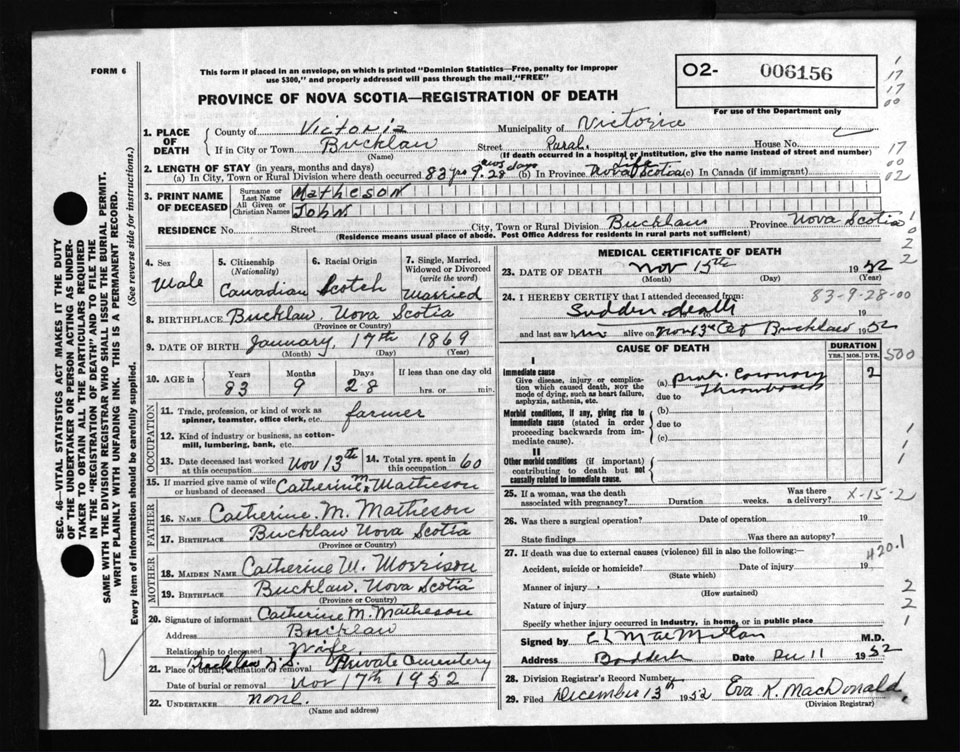 FORM 6
This form if placed in an envelope, on which is printed "Dominion Statistics—Free, penalty for improper
use $300," and properly addressed will pass through the mail "FREE"
O2- 006156
For use of the Department only
PROVINCE OF NOVA SCOTIA—REGISTRATION OF DEATH
1. PLACE OF DEATH
County of Victoria Municipality of Victoria
If in City or Town Bucklaw Street Rural. House No.
(Name) (If death occurred in a hospital or institution, give the name instead of street and number)
2. LENGTH OF STAY (in years, months and days)
(a) In City, Town or Rural Division where death occurred 83 yrs 9 mos 28 days (b) In Province life Nova Scotia (c) In Canada (if immigrant)
3. PRINT NAME OF DECEASED
Surname or Last Name Matheson
All Given or Christian Names John
RESIDENCE No. Street City, Town or Rural Division Bucklaw Province Nova Scotia
(Residence means usual place of abode. Post Office Address for residents in rural parts not sufficient)
4. Sex Male
5. Citizenship (Nationality) Canadian
6. Racial Origin Scotch
7. Single, Married, Widowed or Divorced (write the word) Married
8. BIRTHPLACE Bucklaw. Nova Scotia
(Province or Country)
9. DATE OF BIRTH January, 17th 1869
(Month) (Day) (Year)
10. AGE in Years 83 Months 9 Days 28 If less than one day old hrs. or min.
OCCUPATION
11. Trade, profession, or kind of work as spinner, teamster, office clerk, etc. farmer
12. Kind of industry or business, as cotton-mill, lumbering, bank, etc.
13. Date deceased last worked at this occupation Nov 13th 14. Total yrs. spent in this occupation 60
15. If married give name of wife or husband of deceased Catherine M. Matheson
FATHER
16. NAME Catherine. M. Matheson
17. BIRTHPLACE Bucklaw Nova Scotia
(Province or Country)
MOTHER
18. MAIDEN NAME Catherine M. Morrison
19. BIRTHPLACE Bucklaw. Nova Scotia
(Province or Country)
20. Signature of informant Catherine M. Matheson
Address Bucklaw
Relationship to deceased Wife
21. Place of burial, cremation or removal Bucklaw N.S. Private Cemetery
Date of burial or removal Nov 17th 1952
22. UNDERTAKER none.
(Name and address)
MEDICAL CERTIFICATE OF DEATH
23. DATE OF DEATH Nov 15th 1952
(Month) (Day) (Year)
24. I HEREBY CERTIFY that I attended deceased from: 83-9-28-00
Sudden death 19
and last saw him alive on Nov 13th at Bucklaw 1952
CAUSE OF DEATH
DURATION
YRS. MOS. DYS.
I
Immediate cause
Give disease, injury or complication which caused death, NOT the mode of dying, such as heart failure, asphyxia, asthenia, etc.
(a) prob. Coronary Thrombosis 2
due to
500
Morbid conditions, if any, giving rise to immediate cause (stated in order proceeding backwards from immediate cause).
(b)
due to
(c)
II
Other morbid conditions (if important) contributing to death but not causally related to immediate cause.
25. If a woman, was the death associated with pregnancy? Duration weeks. Was there a delivery?
X-15-2
26. Was there a surgical operation? Date of operation 19
State findings Was there an autopsy?
27. If death was due to external causes (violence) fill in also the following:—
420.1
Accident, suicide or homicide? Date of injury 19
(State which)
Manner of injury
(How sustained)
Nature of injury
Specify whether injury occurred in industry, in home, or in public place
Signed by C L MacMillan M.D.
Address Baddeck Date Dec 11 1952
28. Division Registrar's Record Number
29. Filed December 13th 1952 Eva K. MacDonald,
(Division Registrar)
SEC. 46—VITAL STATISTICS ACT MAKES IT THE DUTY
OF THE UNDERTAKER OR PERSON ACTING AS UNDERTAKER TO OBTAIN ALL THE PARTICULARS REQUIRED
IN THE "REGISTRATION OF DEATH" AND TO FILE THE
SAME WITH THE DIVISION REGISTRAR WHO SHALL ISSUE THE BURIAL PERMIT.
WRITE PLAINLY WITH UNFADING INK. THIS IS A PERMANENT RECORD.
Every item of information should be carefully supplied. (See reverse side for instructions.)
1
17
17
00
17
00
02
1
0
2
2
1
1
2
2
1